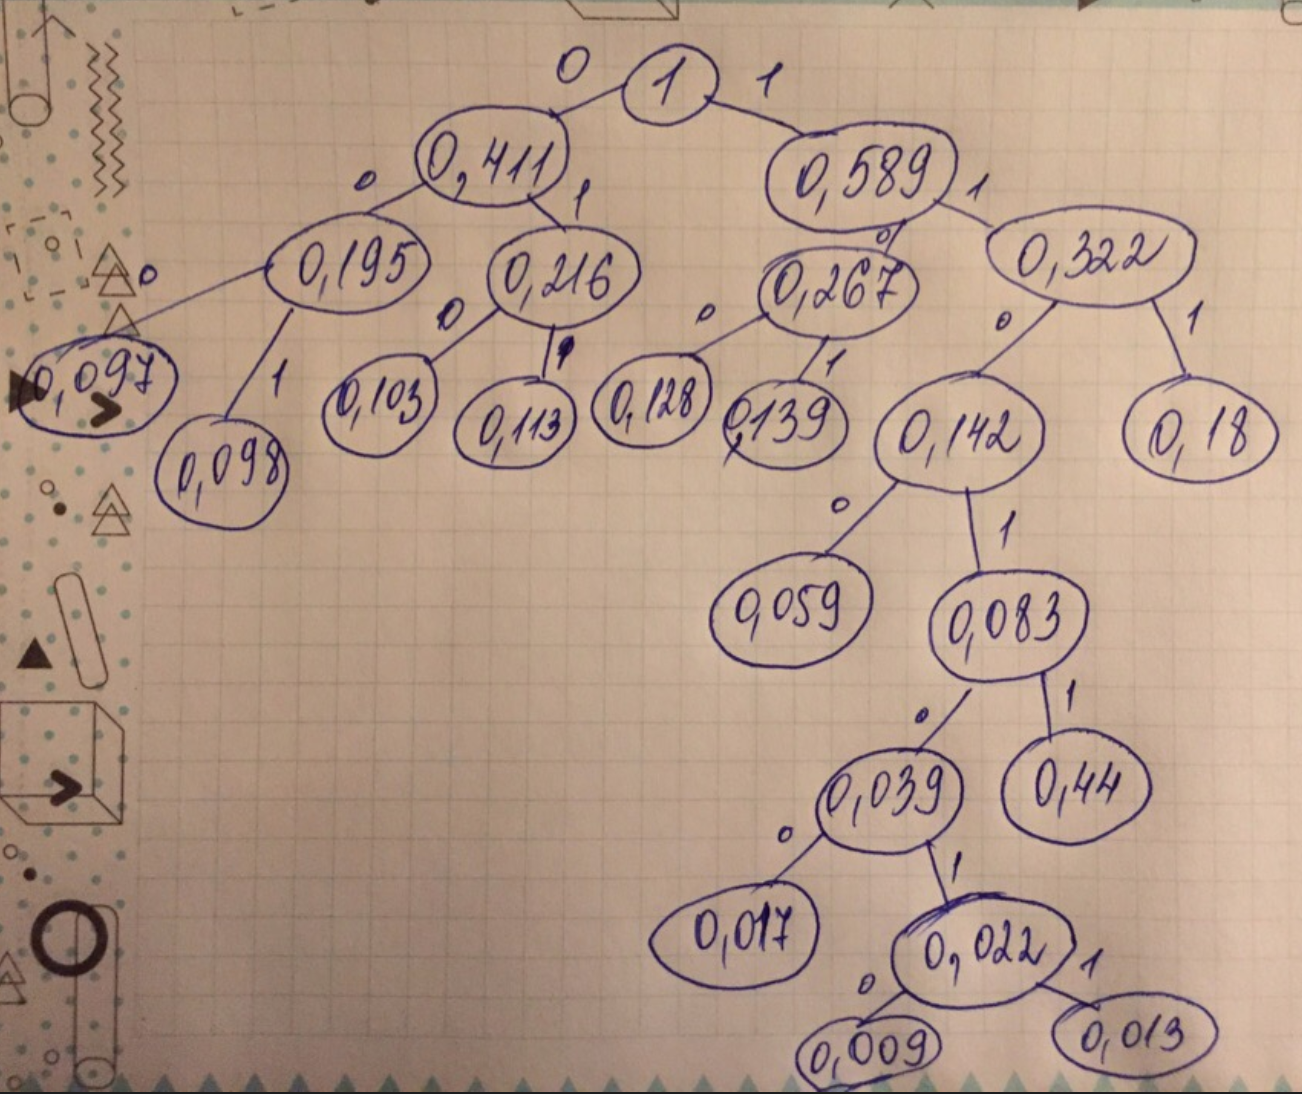 0 1 1
0,411 0,589
0 1 1
0,195 0,216 0 0,267 0,322
0 0 0 0 1
0,097 1 0,103 1 0,128 1 0,139 0,142 0,18
0,098 0,113
0 1
0,059 0,083
0 1
0,039 0,44
0 1
0,017 0,022
0 1
0,009 0,013